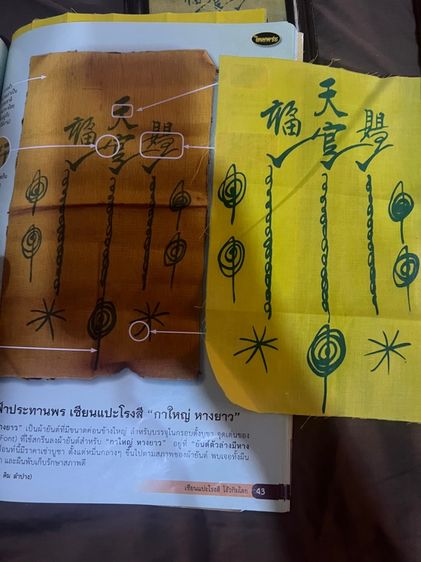 ไทยพระ
天
福 官 賜
天
福 官 賜
ฟ้าประทานพร เซียนแปะโรงสี "กาใหญ่ หางยาว"
งยาว" เป็นผ้ายันต์ที่มีขนาดค่อนข้างใหญ่ สำหรับบรรจุในกรอบตั้งบูชา จุดเด่นของ
Font) ที่ใช้สกรีนลงผ้ายันต์สำหรับ "กาใหญ่ หางยาว" อยู่ที่ "ยันต์ตัวล่างมีหาง
ก่อนที่นี้มีราคาเช่าบูชา ตั้งแต่หมื่นกลางๆ ขึ้นไปตามสภาพของผ้ายันต์ พบเจอทั้งผืน
า และผืนพับเก็บรักษาสภาพดี
คิม ลำปาง)
เซียนแปะโรงสี โง้วกิมโคย 43